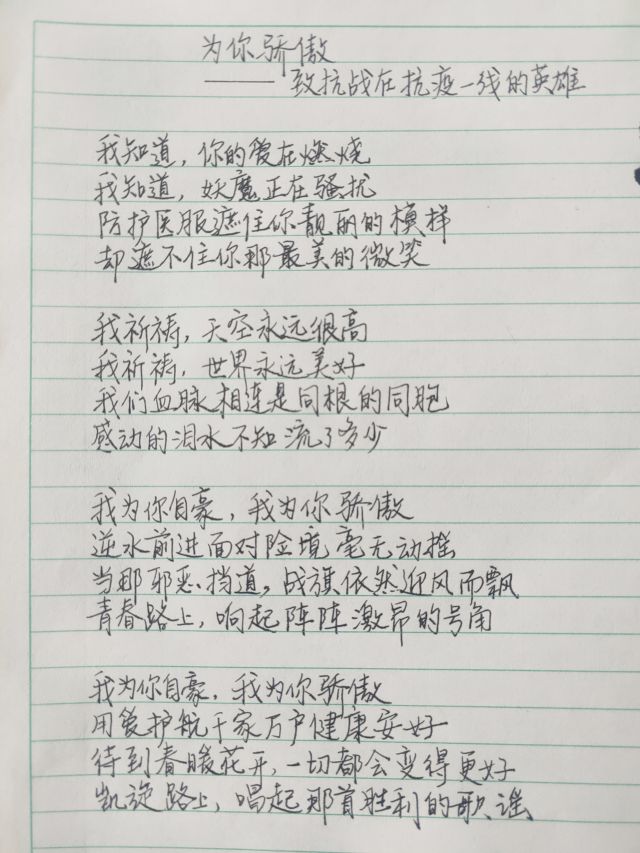 为你骄傲
—— 致抗战在抗疫一线的英雄
我知道，你的爱在燃烧
我知道，妖魔正在骚扰
防护医服遮住你靓丽的模样
却遮不住你那最美的微笑
我祈祷，天空永远很高
我祈祷，世界永远美好
我们血脉相连是同根的同胞
感动的泪水不知流了多少
我为你自豪，我为你骄傲
逆水前进面对险境毫无动摇
当那邪恶挡道，战旗依然迎风而飘
青春路上，响起阵阵激昂的号角
我为你自豪，我为你骄傲
用爱护航千家万户健康安好
待到春暖花开，一切都会变得更好
凯旋路上，唱起那首胜利的歌谣